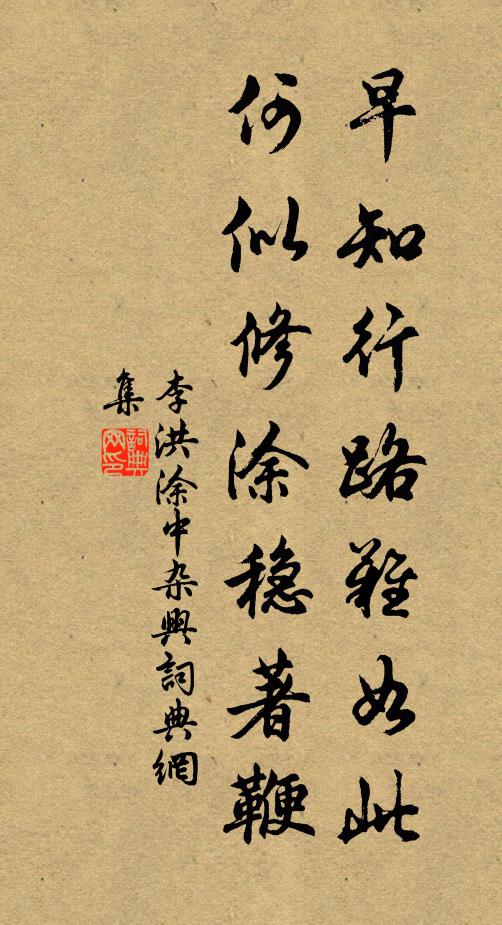 早知行路难如此
何似修涂稳著鞭
李洪涂中杂興詞典網
集
詞典網印